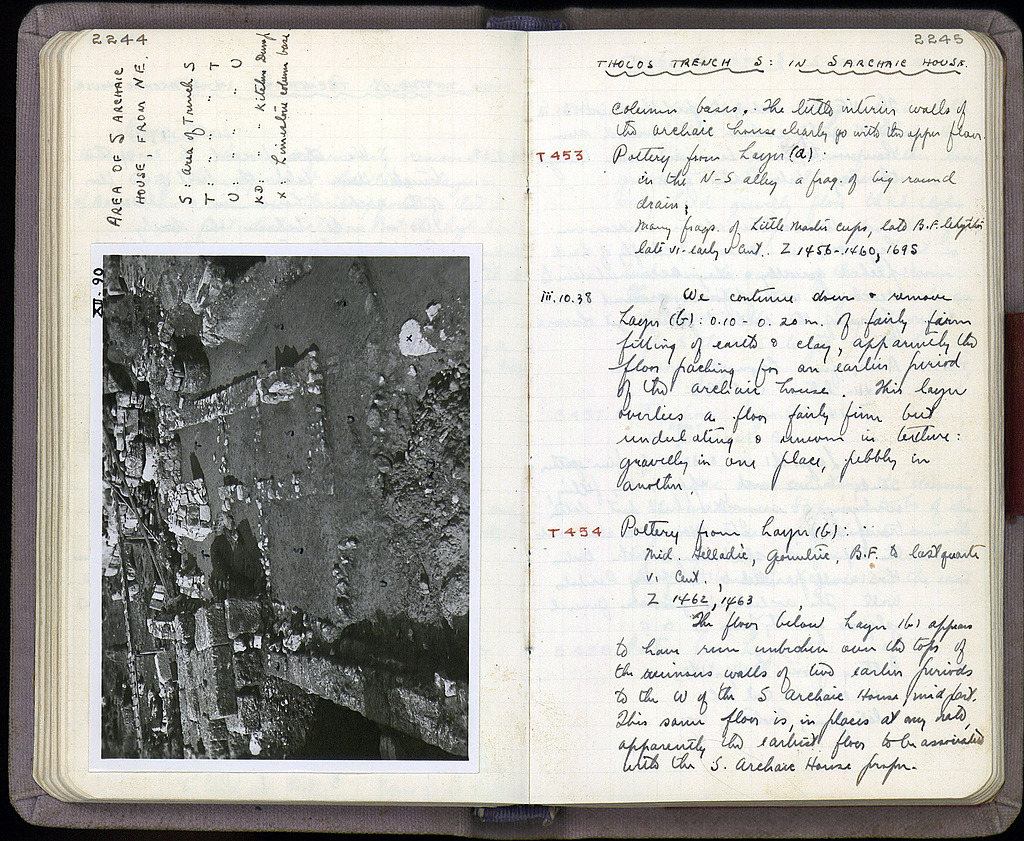 2244
AREA OF S ARCHAIC
HOUSE, FROM NE.
S: area of Trench S
T " " " T
U: " " " U
KD: " " Kitchen Dump
X: Limestone column base
XII-90
2245
THOLOS TRENCH S: IN S ARCHAIC HOUSE.
column bases. The little interior walls of
the archaic house clearly go with the upper floor.
T 453 Pottery from Layer (a):
in the N-S alley a frag. of big round
drain;
many frags. of Little Master cups, late B.F. lekythoi
late vi-early v cent. Z 1456-1460, 1695
iii.10.38 We continue down & remove
Layer (b): 0.10-0.20 m. of fairly firm
filling of earth & clay, apparently the
floor packing for an earlier period
of the archaic house. This layer
overlies a floor fairly firm but
undulating & uneven in texture:
gravelly in one place, pebbly in
another.
T 454 Pottery from Layer (b):
Mid. Helladic, Geometric, B.F. to last quarter
vi cent.,
Z 1462, 1463
The floor below Layer (b) appears
to have run unbroken over the tops of
the ruinous walls of two earlier periods
to the W of the S Archaic House mid part.
This same floor is, in places at any rate,
apparently the earliest floor to be associated
with the S. Archaic House proper.